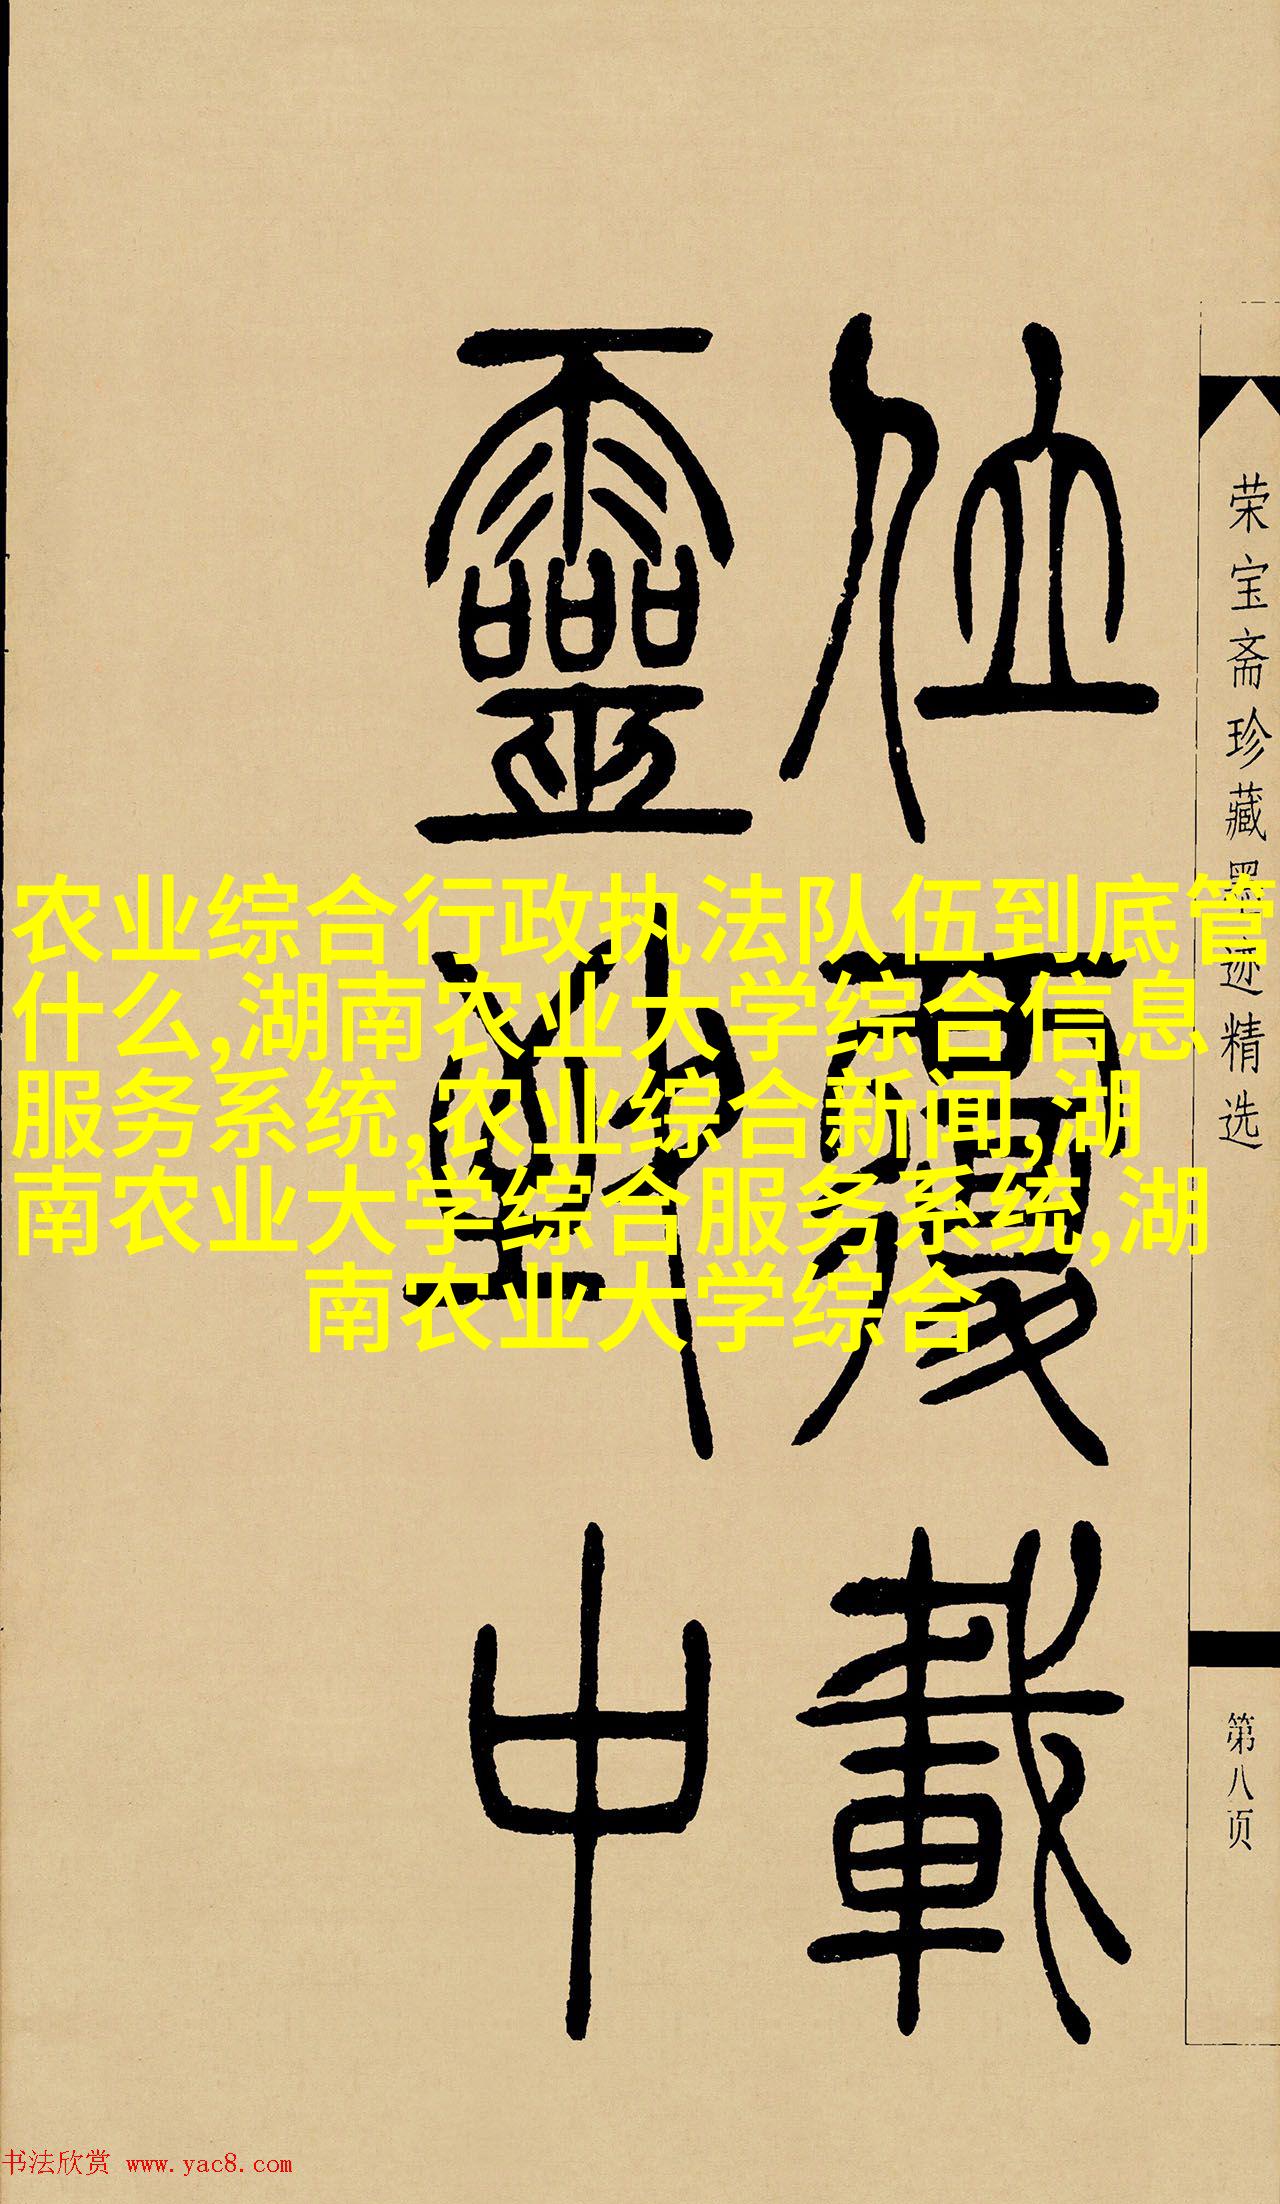 位覆載
靈中
荣宝斋珍藏墨迹精选
第八页
农业综合行政执法队伍到底管
什么,湖南农业大学综合信息
服务系统,农业综合新闻,湖
南农业大学综合服务系统,湖
南农业大学综合
书法欣赏 www.yac8.com